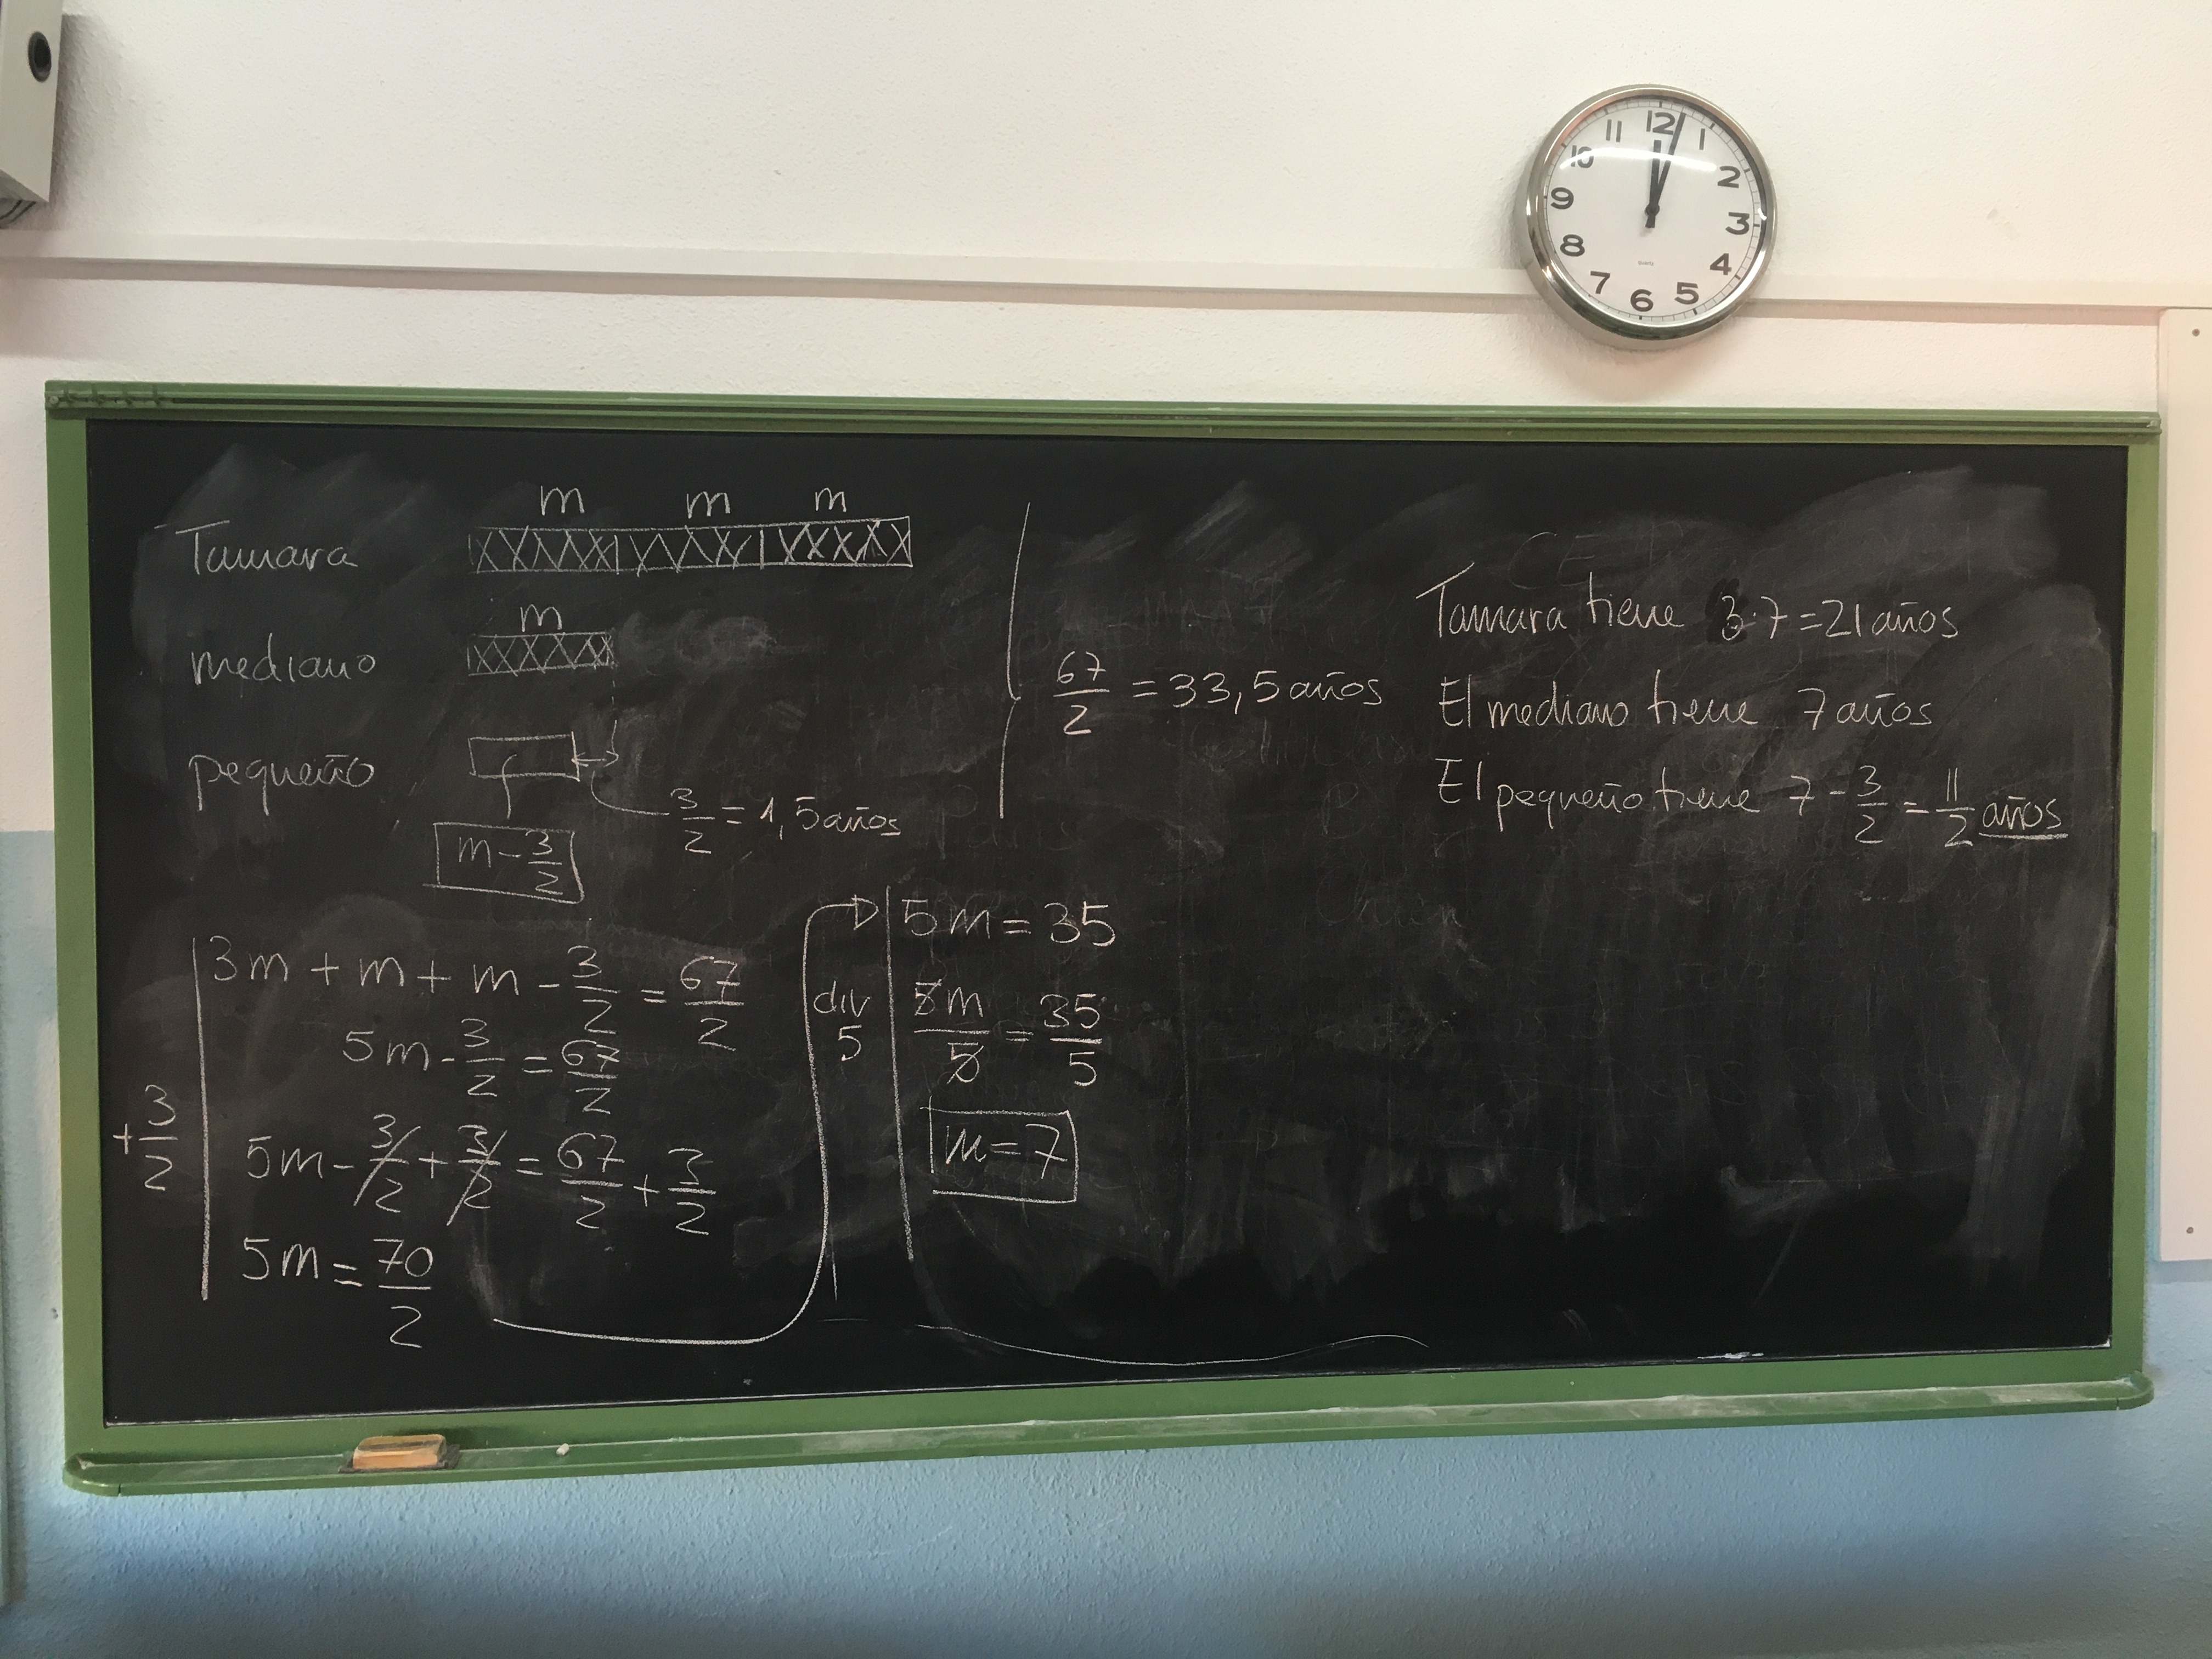 12
11 1
10 2
9 3
8 4
7 5
6
m m m
Tamara
m
mediano
pequeño
3/2 = 1,5 años
m - 3/2
67/2 = 33,5 años
3m + m + m - 3/2 = 67/2
5m - 3/2 = 67/2
+ 3/2
5m - 3/2 + 3/2 = 67/2 + 3/2
5m = 70/2
5m = 35
div
5
5m/5 = 35/5
m = 7
Tamara tiene 3·7 = 21 años
El mediano tiene 7 años
El pequeño tiene 7 - 3/2 = 11/2 años